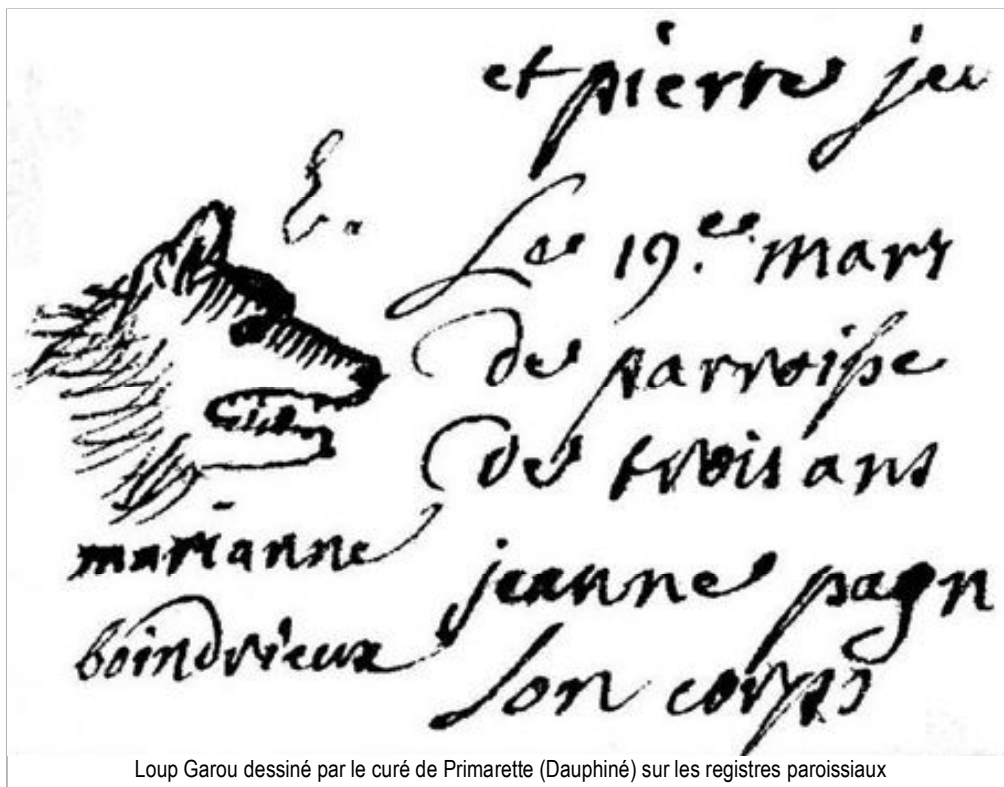 et pierre jeu
E.
Le 19.e mars
de parroisse
de trois ans
marianne
boindrieux
jeanne pagn
son corps
Loup Garou dessiné par le curé de Primarette (Dauphiné) sur les registres paroissiaux